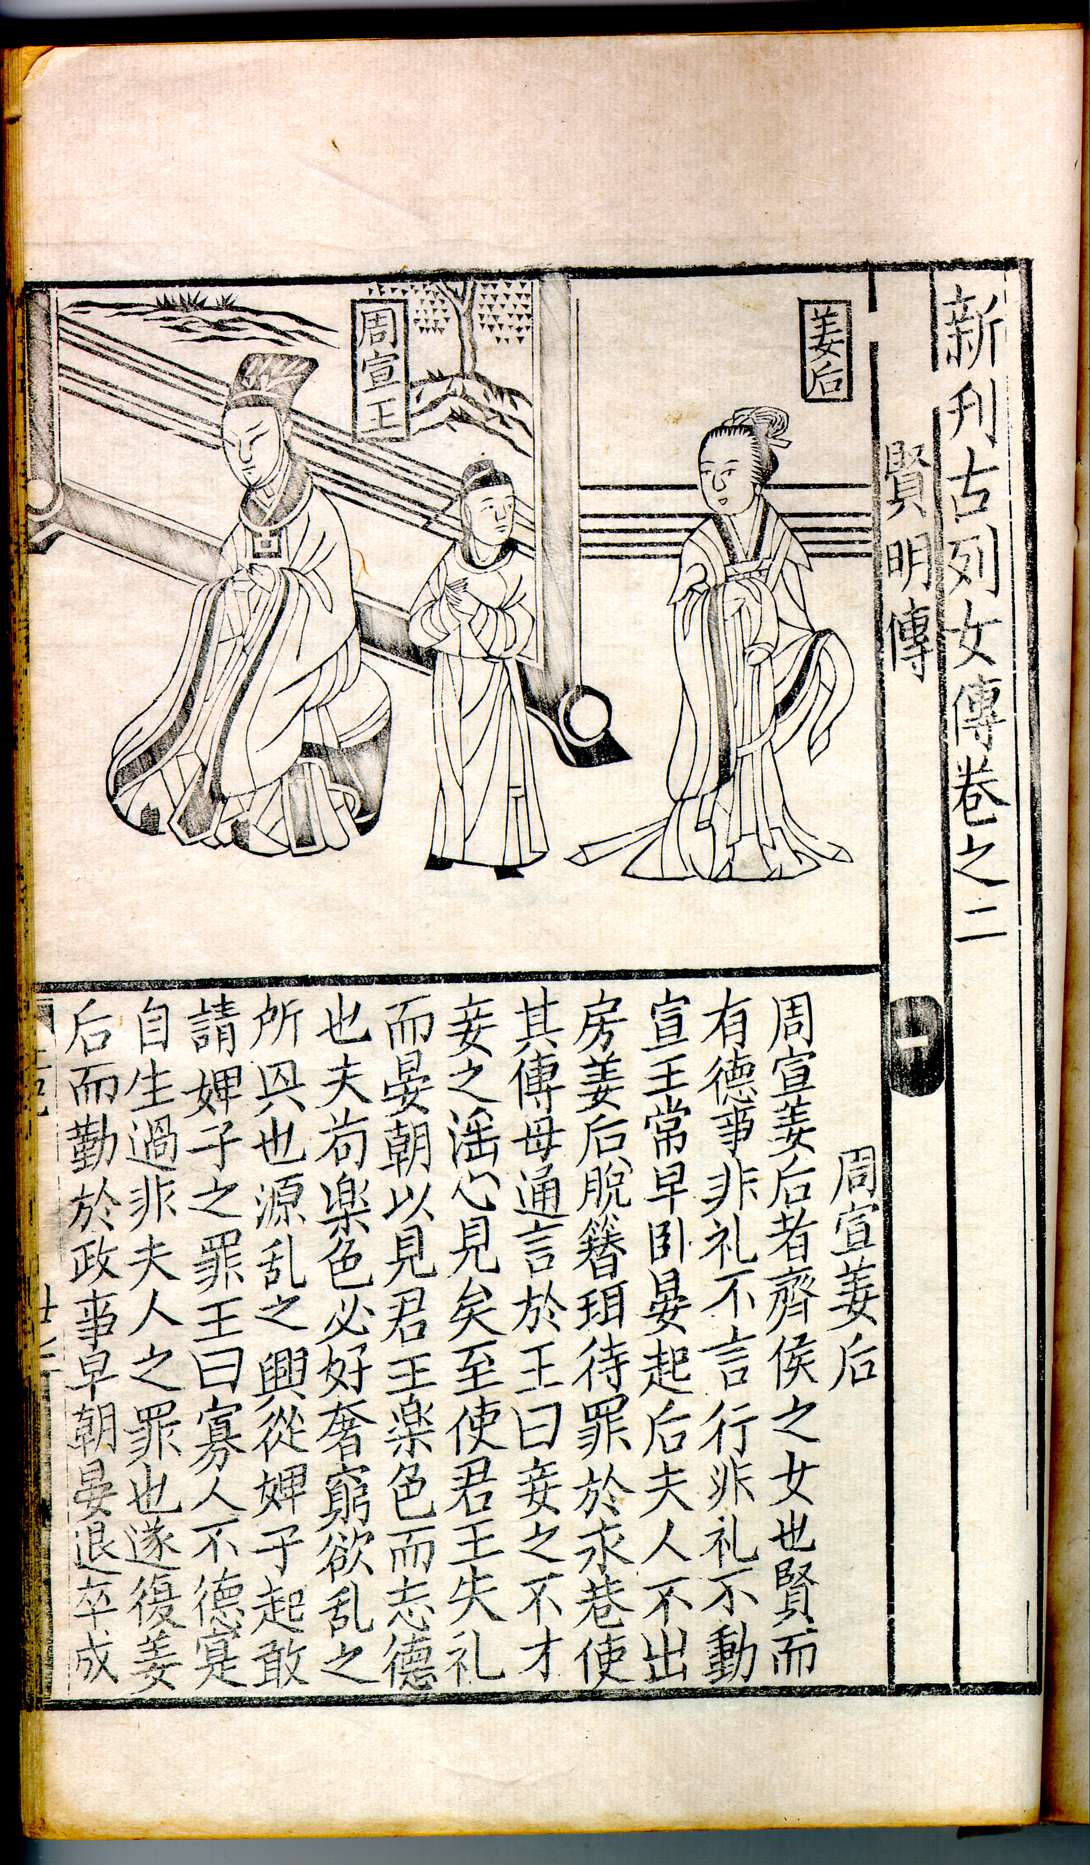 新刋古列女傳卷之二
賢明傳
一
姜后
周宣王
周宣姜后
周宣姜后者齊侯之女也賢而
有德事非礼不言行非礼不動
宣王常早卧晏起后夫人不出
房姜后脫簪珥待罪於永巷使
其傅母通言於王曰妾之不才
妾之滛心見矣至使君王失礼
而晏朝以見君王楽色而忘德
也夫苟楽色必好奢窮欲乱之
所㒷也源乱之興從婢子起敢
請婢子之罪王曰寡人不德寔
自生過非夫人之罪也遂復姜
后而勤於政事早朝晏退卒成